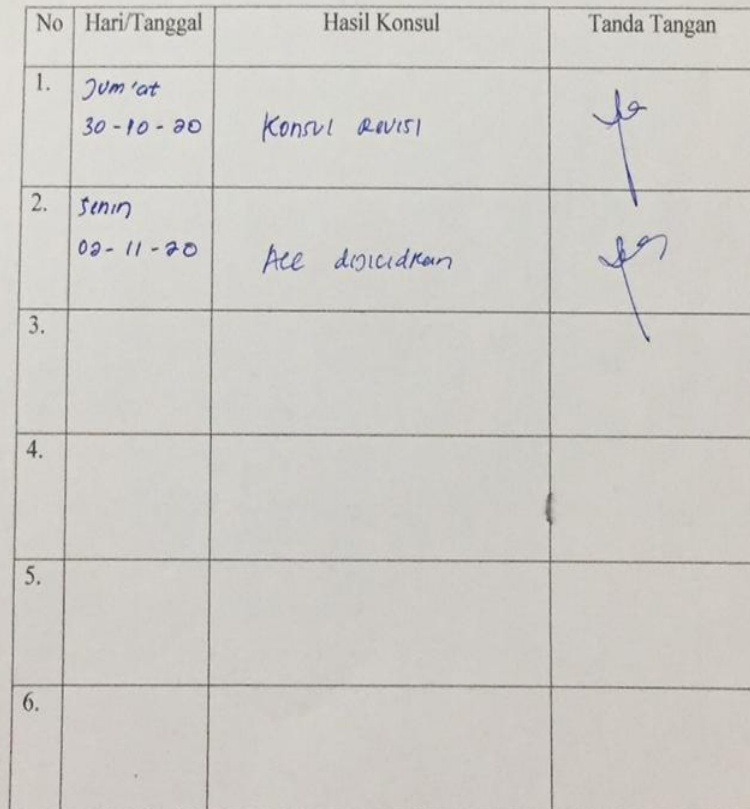 No Hari/Tanggal Hasil Konsul Tanda Tangan
1. Jum'at
30-10-20 Konsul Revisi
2. Senin
02-11-20 Acc dijilidkan
3.
4.
5.
6.